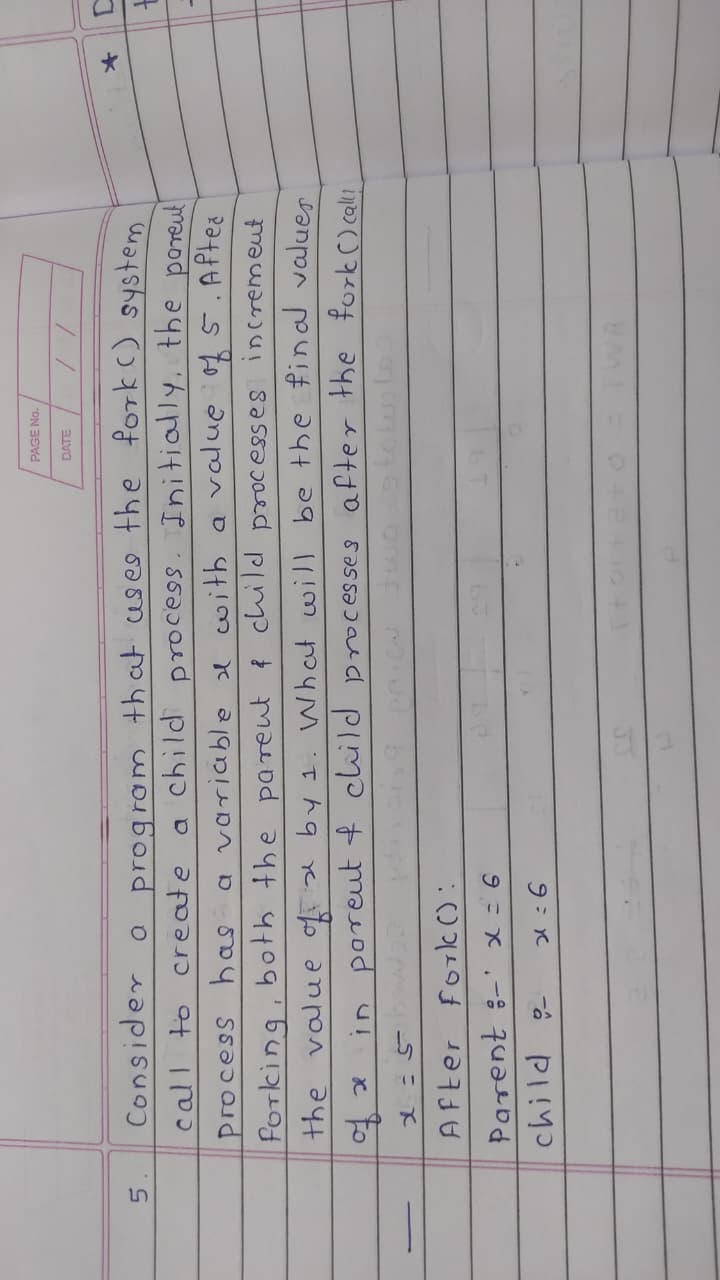 PAGE No.
DATE / /
5. Consider a program that uses the fork() system
call to create a child process. Initially, the parent
process has a variable x with a value of 5. After
forking, both the parent & child processes increment
the value of x by 1. What will be the final values
of x in parent & child processes after the fork() call?
— x = 5
After fork():
Parent :- x = 6
child :- x = 6